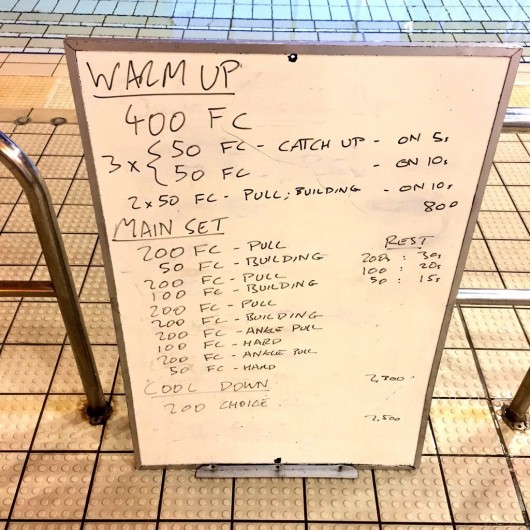 WARM UP
400 FC
3 x { 50 FC - CATCH UP - ON 5s
50 FC - ON 10s
2 x 50 FC - PULL; BUILDING - ON 10s
800
MAIN SET
REST
200 FC - PULL
200s : 30s
50 FC - BUILDING
100 : 20s
200 FC - PULL
50 : 15s
100 FC - BUILDING
200 FC - PULL
200 FC - BUILDING
200 FC - ANKLE PULL
100 FC - HARD
200 FC - ANKLE PULL
50 FC - HARD
2,300
COOL DOWN
200 CHOICE
2,500